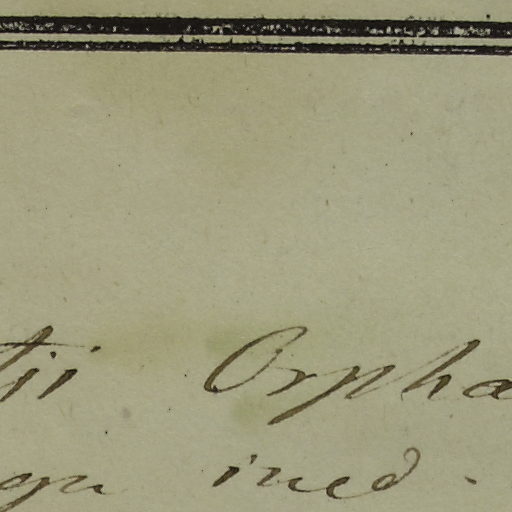 tii Orpha
gn ined.